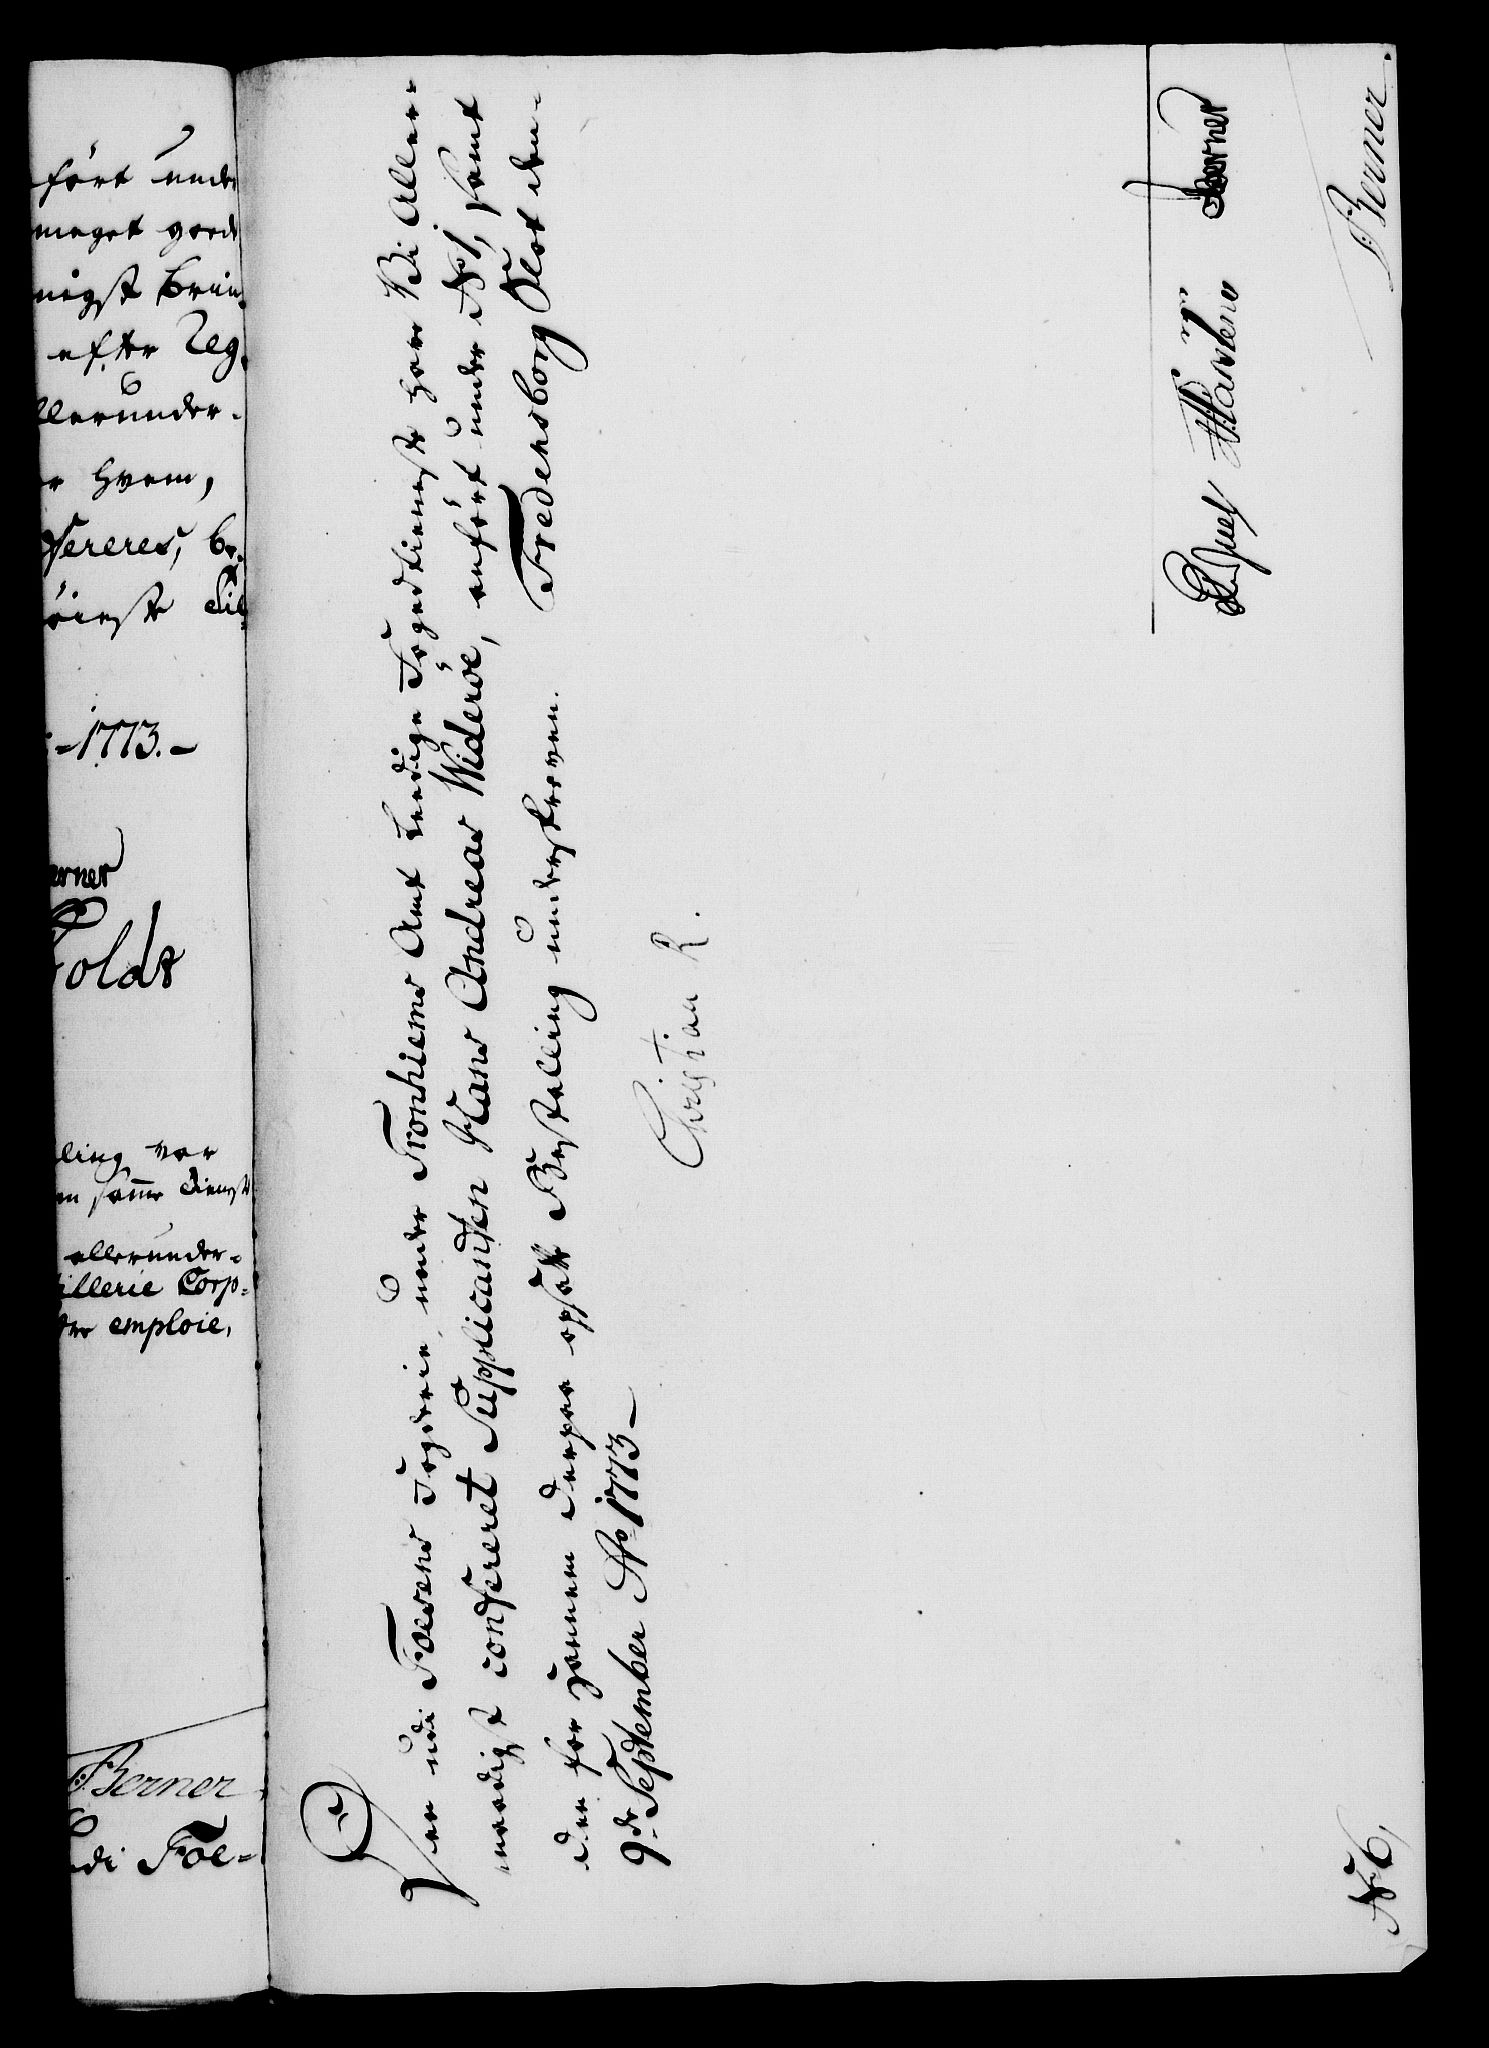 ført unde
meget gode
nigst brin-
efter Reg-
llerunder-
r hvem,
fereres, be-
øieste Til-
-1773.-
erner
Holdt
ling var
en samme dienst
allerunder-
tillerie Corp-
der emploie,
Berner
udi Foe-
Den udi Foesens Fogderie under Tronhiems Amt ledige Fogedtieneste have Vi Aller-
naadigst confereret Supplicanten Hans Andreas Widerøe, anført under No 1, samt
den for hannem derpaa opsatte Bestalling underskreven. Fredensborg Slot den-
9de September Ao 1773 -
Christian R.
Juel Berner
Berner.
No 6,